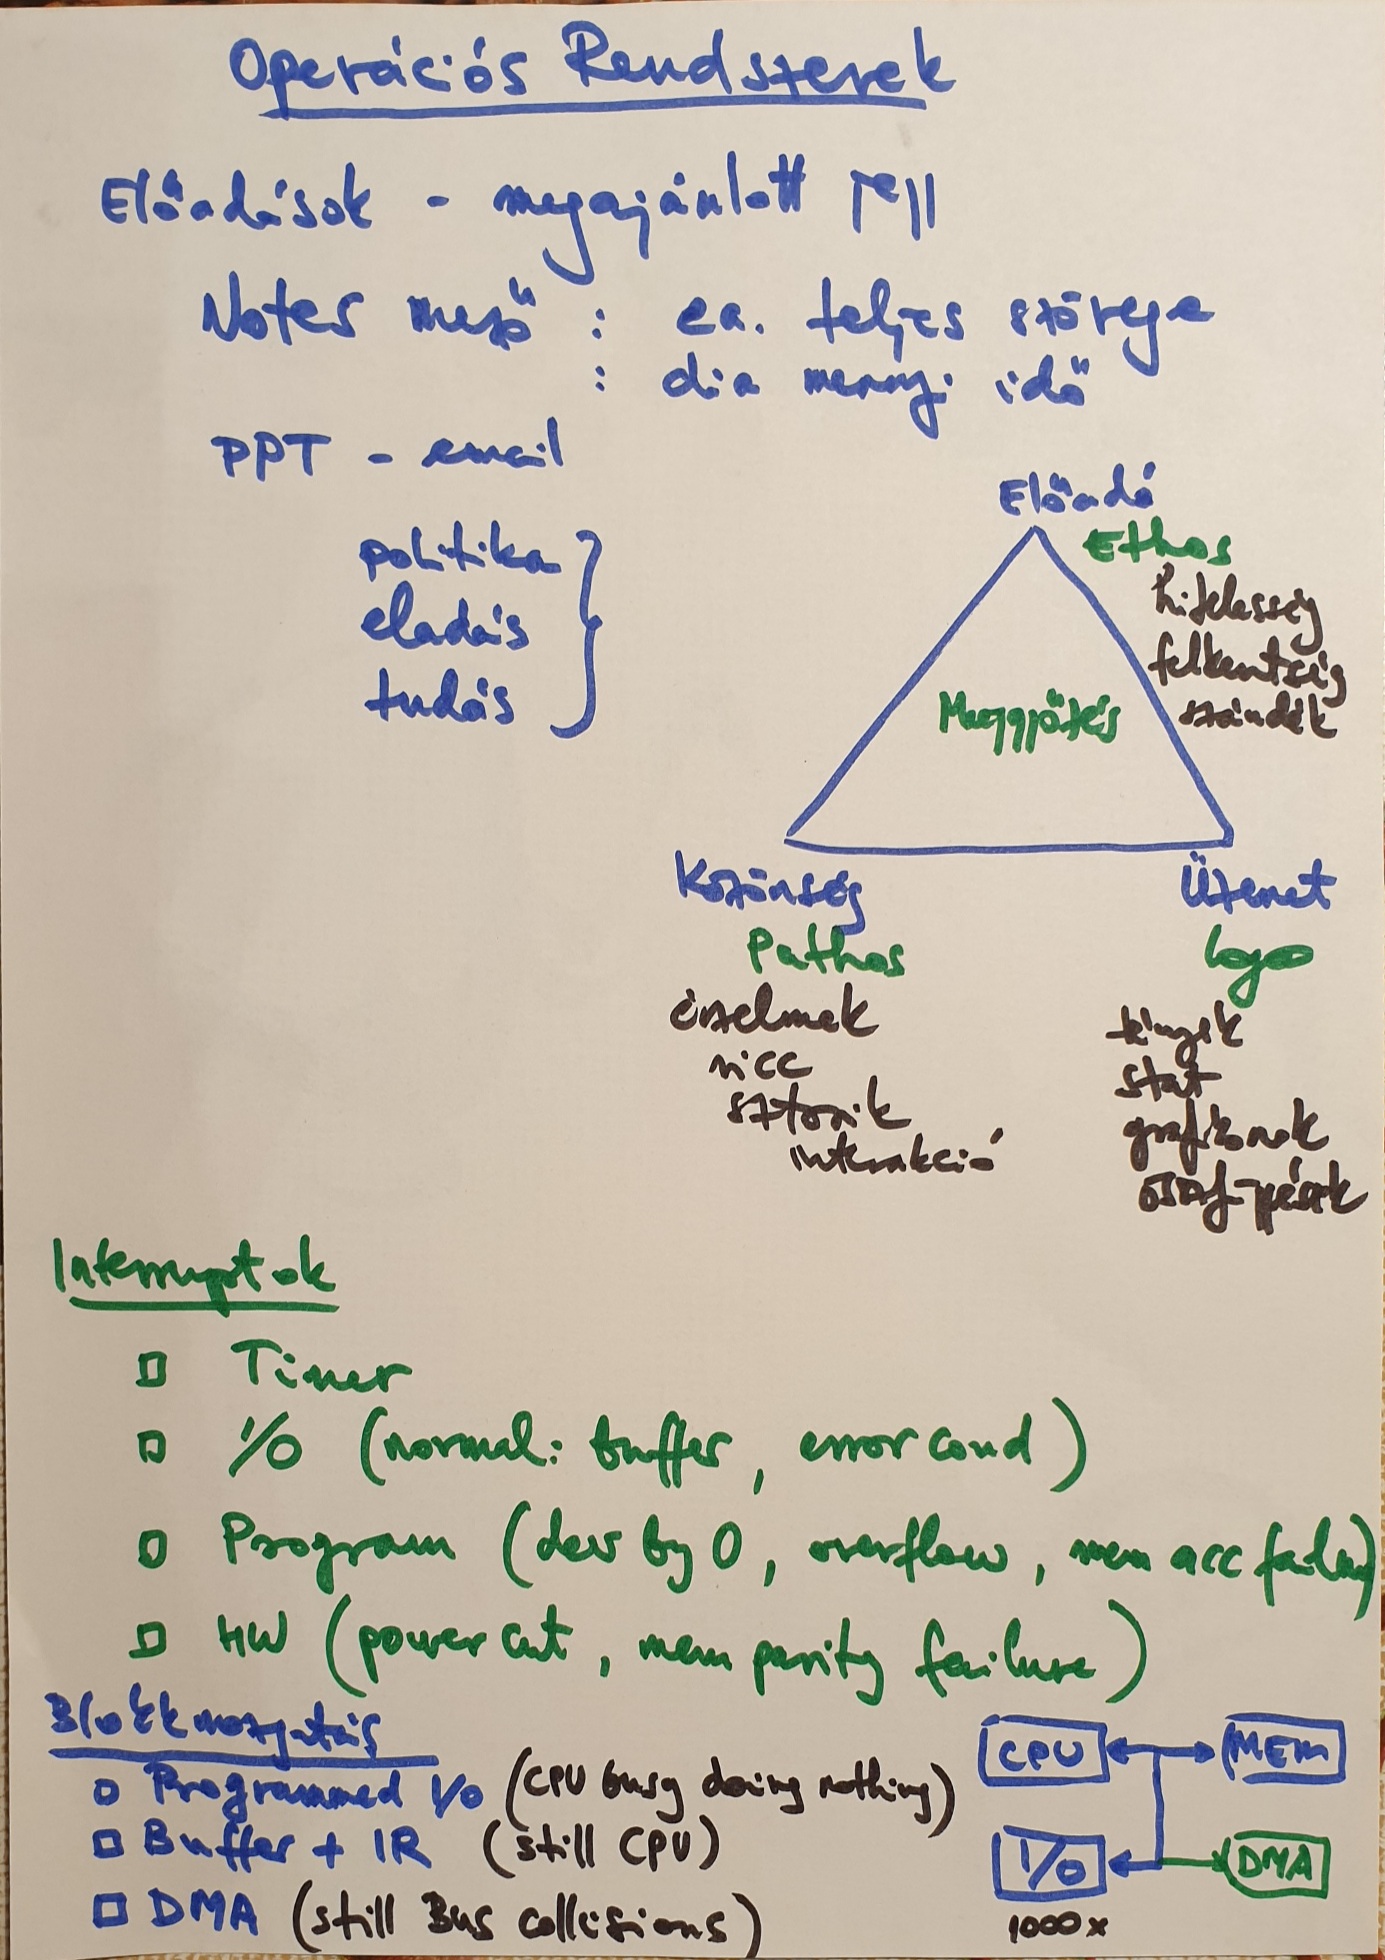 Operációs Rendszerek
Előadások - megajánlott jegy
Notes mező : ea. teljes szövege
: dia mennyi idő
PPT - email
politika
eladás
tudás
Előadó
Ethos
hitelesség
felkentség
szándék
Meggyőzés
Közönség
Pathos
érzelmek
vicc
sztorik
interakció
Üzenet
logo
tények
stat
grafikonok
Interruptok
Timer
I/O (normal: buffer, error cond)
Program (dev by 0, overflow, mem acc failure)
HW (power cut, mem parity failure)
Blokkmozgatás
Programmed I/O (CPU busy doing nothing)
Buffer + IR (still CPU)
DMA (still Bus collisions)
CPU MEM
I/O DMA
1000x